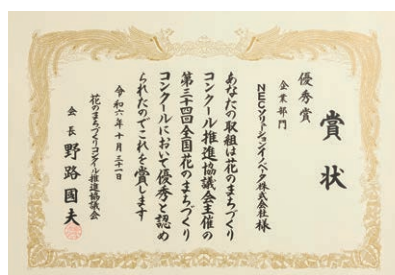 賞状
優秀賞
企業部門
NECソリューションイノベータ株式会社様
あなたの取組は花のまちづくり
コンクール推進協議会主催の
第三十四回全国花のまちづくり
コンクールにおいて優秀と認め
られたのでこれを賞します
令和六年十月三十一日
花のまちづくりコンクール推進協議会
会長 野路國夫